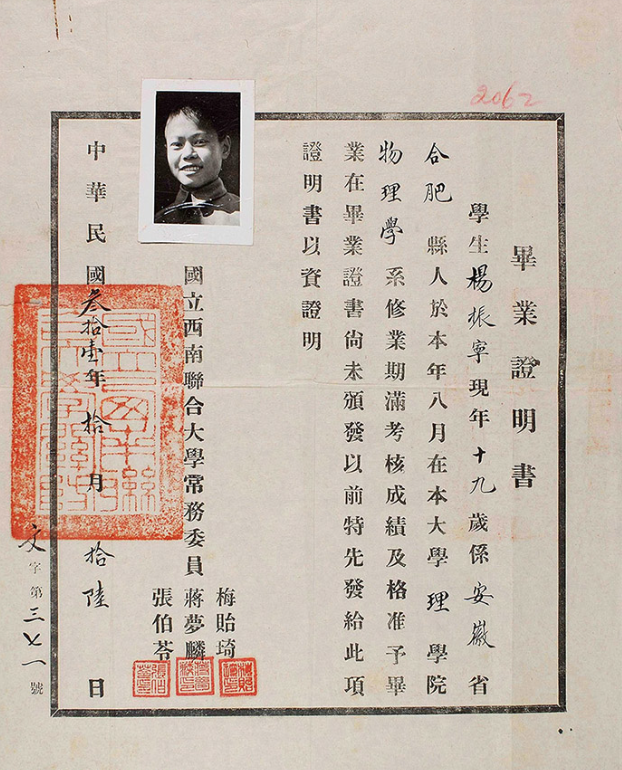 2062
畢業證明書
學生楊振寧現年十九歲係安徽省
合肥縣人於本年八月在本大學理學院
物理學系修業期滿考核成績及格准予畢
業在畢業證書尚未頒發以前特先發給此項
證明書以資證明
國立西南聯合大學常務委員
梅貽琦
蔣夢麟
張伯苓
中華民國叁拾壹年拾月拾陸日
文字第三七一號